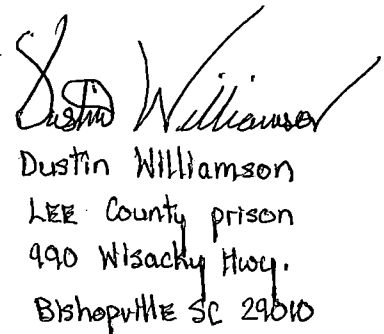 Dustin Williamson
Dustin Williamson
LEE County prison
990 Wisacky Hwy.
Bishopville SC 29010